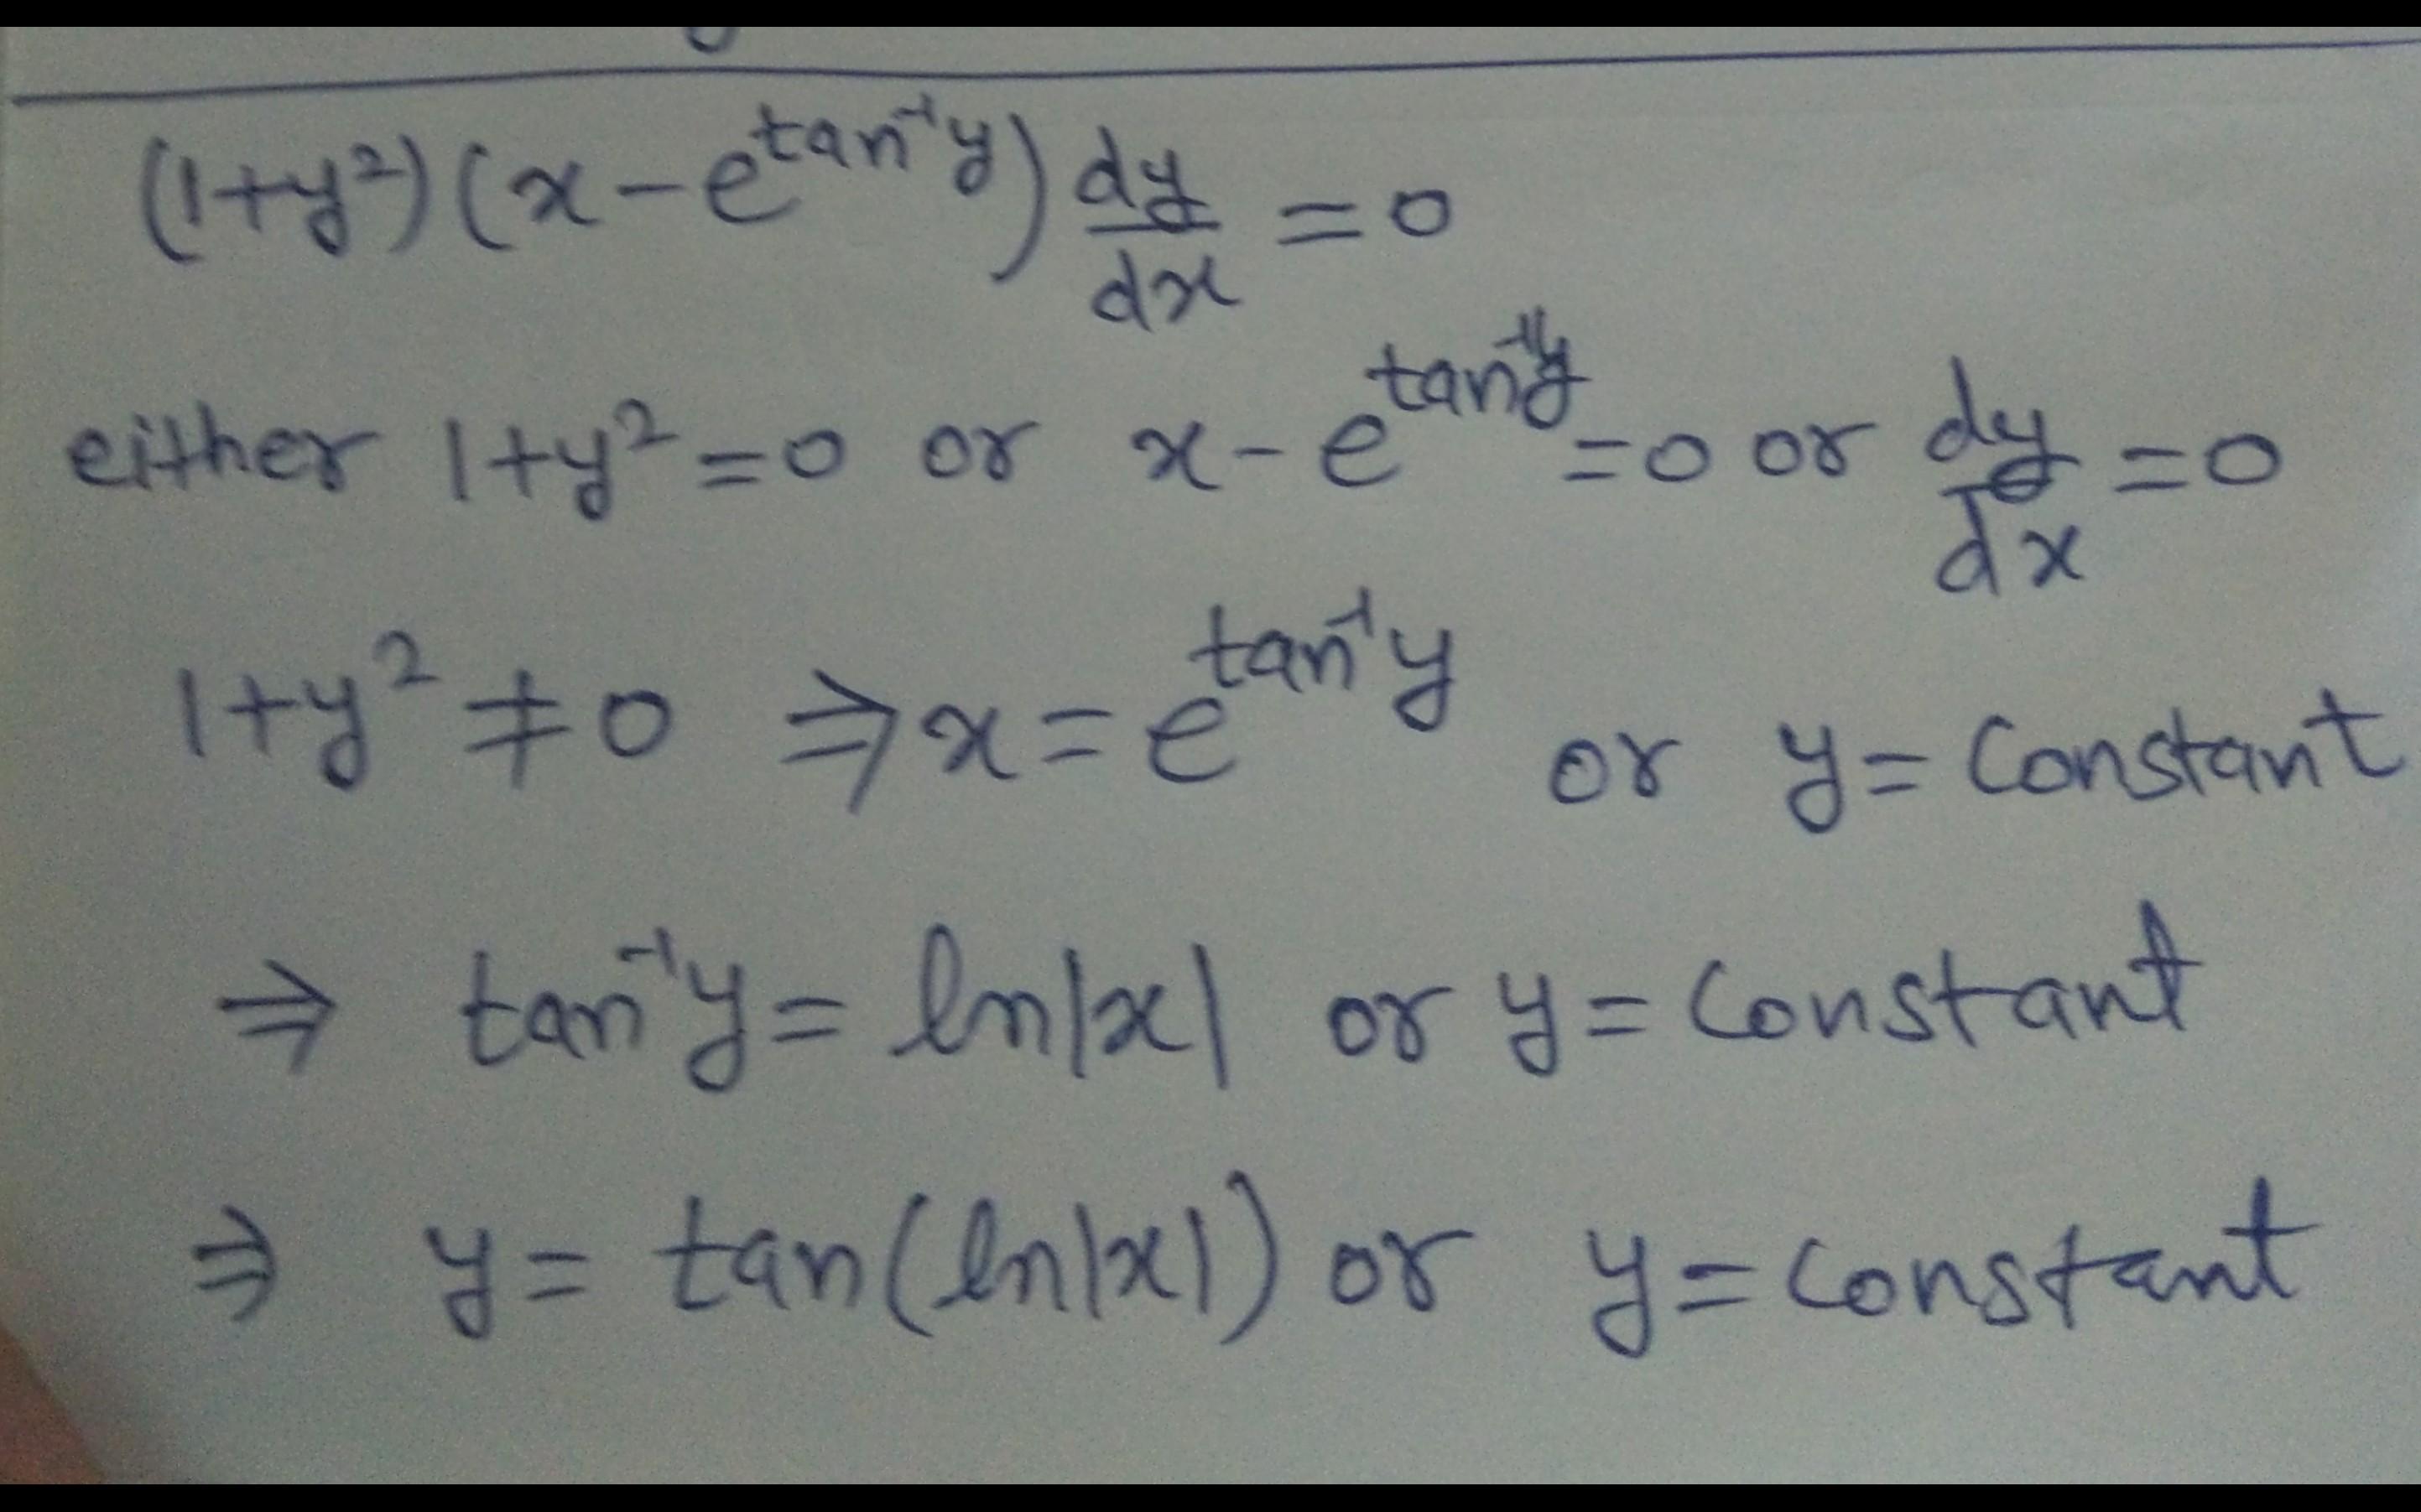 (1+y²)(x-e^{tan⁻¹y}) dy/dx = 0
either 1+y² = 0 or x-e^{tan⁻¹y} = 0 or dy/dx = 0
1+y² ≠ 0 ⇒ x = e^{tan⁻¹y} or y = Constant
⇒ tan⁻¹y = ln|x| or y = Constant
⇒ y = tan(ln|x|) or y = Constant